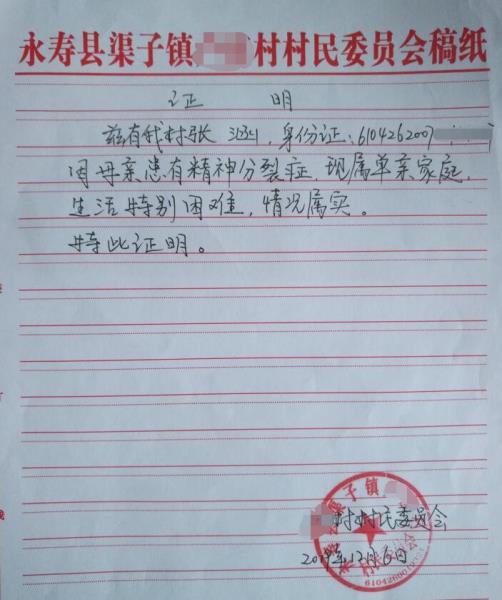 永寿县渠子镇 村村民委员会稿纸
证 明
兹有我村张 ，身份证：610426200
因母亲患有精神分裂症，现属单亲家庭，
生活特别困难，情况属实。
特此证明。
渠子镇
村村民委员会
2019年12月6日